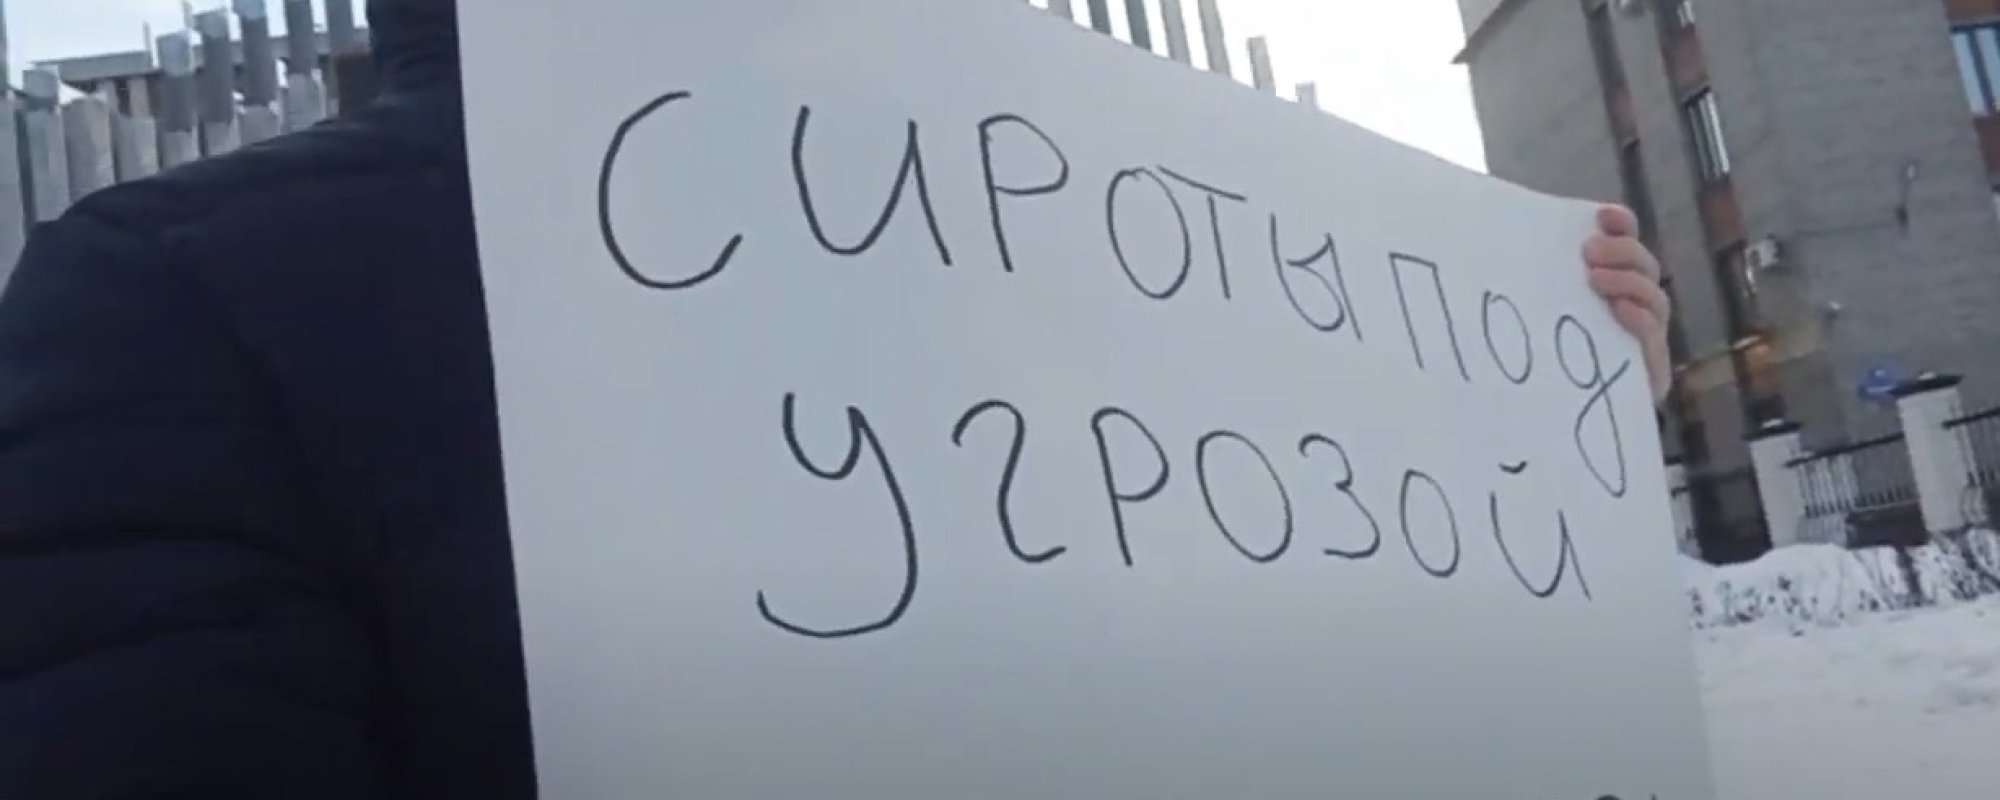 СИРОТЫ ПОД
УГРОЗОЙ